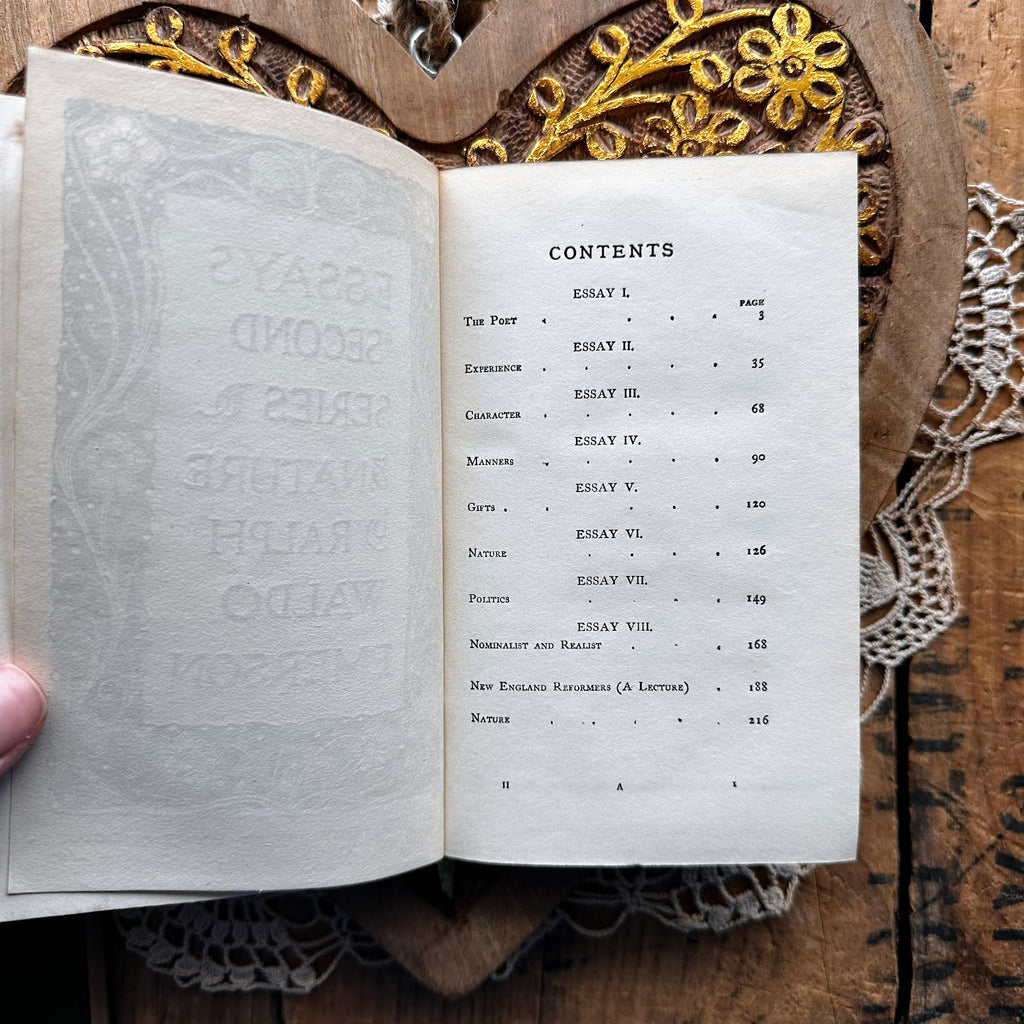 CONTENTS
ESSAY I.
PAGE
THE POET . . . . 3
ESSAY II.
EXPERIENCE . . . . . 35
ESSAY III.
CHARACTER . . . . . 68
ESSAY IV.
MANNERS . . . . . 90
ESSAY V.
GIFTS . . . . . . 120
ESSAY VI.
NATURE . . . . 126
ESSAY VII.
POLITICS . . . . 149
ESSAY VIII.
NOMINALIST AND REALIST . . . 168
NEW ENGLAND REFORMERS (A LECTURE) . 188
NATURE . . . . . . 216
II A I